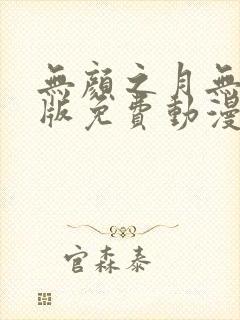 無顏之月無
版免費動漫
官森泰